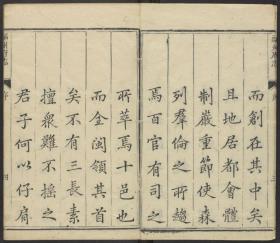 而創在其中矣
且地居都會體
制嚴重節使森
列羣倫之所趨
焉百官有司之
所萃焉十邑也
而全閩領其首
矣不有三長素
擅衆難不搖之
君子何以仔肩
序
四